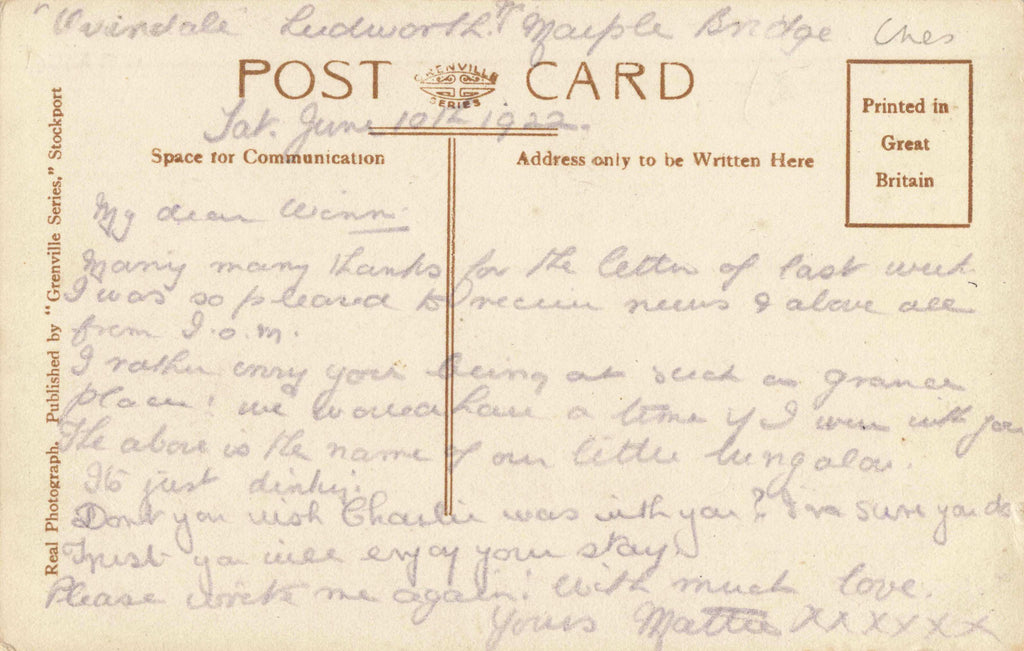 "Ovindale" Ludworth. Nr Marple Bridge
Ches
POST CARD
GRENVILLE
SERIES
Sat. June 10th 1922.
Space for Communication
Address only to be Written Here
Printed in
Great
Britain
Real Photograph. Published by "Grenville Series," Stockport
My dear Winn.
Many many thanks for the letter of last week
I was so pleased to receive news & above all
from I.o.m.
I rather envy you being at such a grand
place! we would have a time if I were with you
The above is the name of our little bungalow.
It's just dinky.
Don't you wish Charlie was with you? I'm sure you do
Trust you will enjoy your stay.
Please write me again! With much love.
Yours Mattie xxxxxx